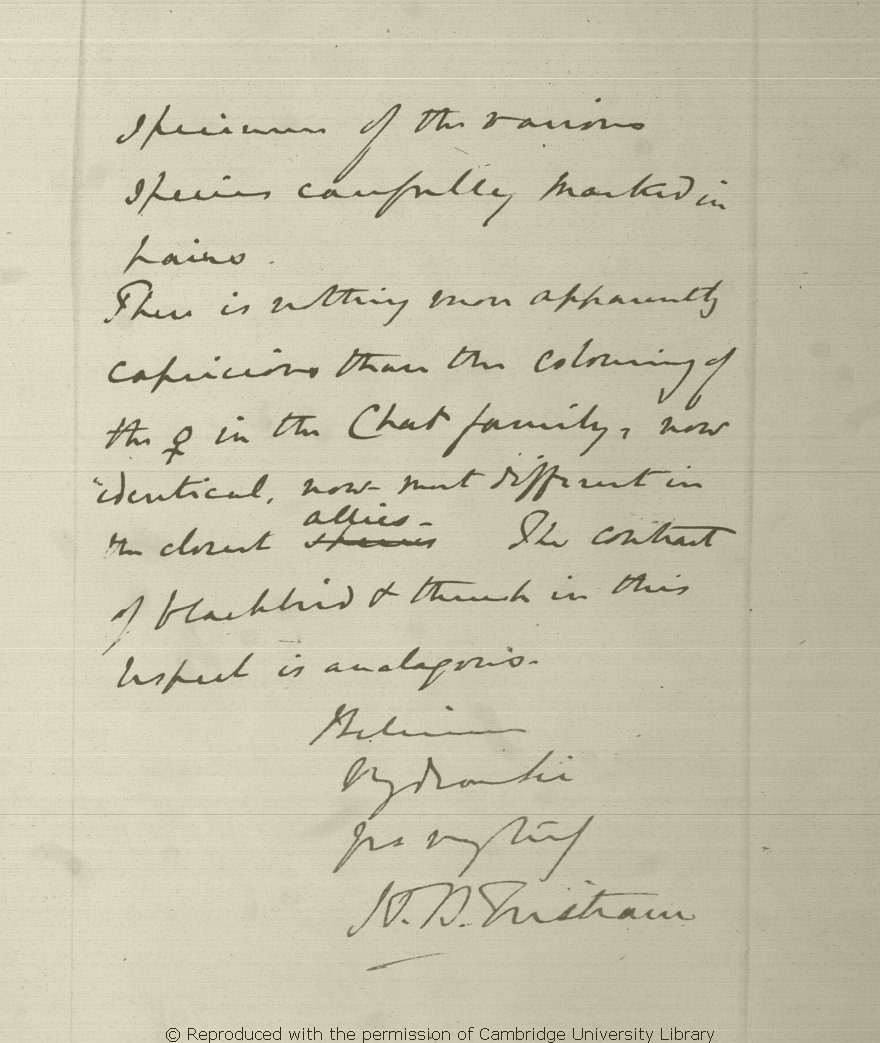 Specimens of the various
Species carefully marked in
pairs.
There is nothing more apparently
capricious than the colouring of
the ♀ in the Chat family, now
identical, now most different in
the closest allies species. The contrast
of blackbird & thrush in this
respect is analagous.
Believe me
My dear Sir
Yrs very truly
H. B. Tristram
© Reproduced with the permission of Cambridge University Library